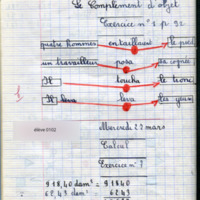 Le Complément d'objet
Exercice n° 1 p 92
quatre hommes entaillaient le pied
un travailleur posa sa cognée
Il toucha le tronc
Il leva les yeux
élève 0102
Mercredi 22 mars
Calcul
Exercice n° 7
918,40 dam² = 91840
62,43 dam² = 6243